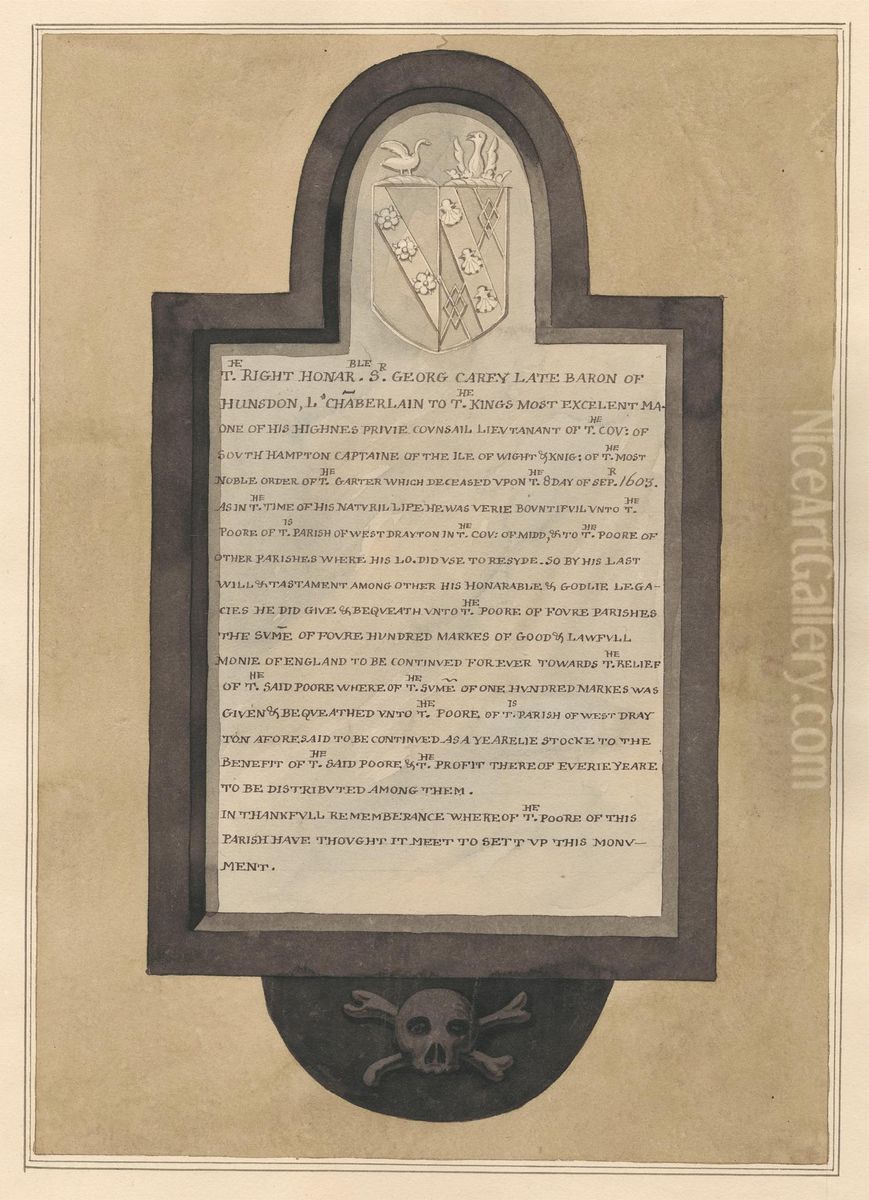 T.HE RIGHT HONAR.BLE S.R GEORG CAREY LATE BARON OF
HUNSDON, L.S CHÃBERLAIN TO T.HE KINGS MOST EXCELENT MA-
ONE OF HIS HIGHNES PRIVIE COVNSAIL LIEVTANANT OF T.HE COV: OF
SOVTH HAMPTON CAPTAINE OF THE ILE OF WIGHT & KNIG: OF T.HE MOST
NOBLE ORDER OF T.HE GARTER WHICH DECEASED VPON T.HE 8 DAY OF SEP.R 1603.
AS IN T.HE TIME OF HIS NATVRIL LIFE HE WAS VERIE BOVNTIFVIL VNTO T.HE
POORE OF T.IS PARISH OF WEST DRAYTON IN T.HE COV: OF MIDD, & TO T.HE POORE OF
OTHER PARISHES WHERE HIS LO. DID VSE TO RESYDE. SO BY HIS LAST
WILL & TASTAMENT AMONG OTHER HIS HONARABLE & GODLIE LEGA-
CIES HE DID GIVE & BEQVEATH VNTO T.HE POORE OF FOVRE PARISHES
THE SVM̃E OF FOVRE HUNDRED MARKES OF GOOD & LAWFVLL
MONIE OF ENGLAND TO BE CONTINVED FOR EVER TOWARDS T.HE RELIEF
OF T.HE SAID POORE WHERE OF T.HE SVM̃E OF ONE HVNDRED MARKES WAS
GIVEN & BEQVEATHED VNTO T.HE POORE OF T.IS PARISH OF WEST DRAY
TON AFORESAID TO BE CONTINVED AS A YEARELIE STOCKE TO THE
BENEFIT OF T.HE SAID POORE & T.HE PROFIT THEREOF EVERIE YEARE
TO BE DISTRIBVTED AMONG THEM.
IN THANKFVLL REMEMBERANCE WHERE OF T.HE POORE OF THIS
PARISH HAVE THOVGHT IT MEET TO SETT VP THIS MONV-
MENT.
NiceArtGallery.com